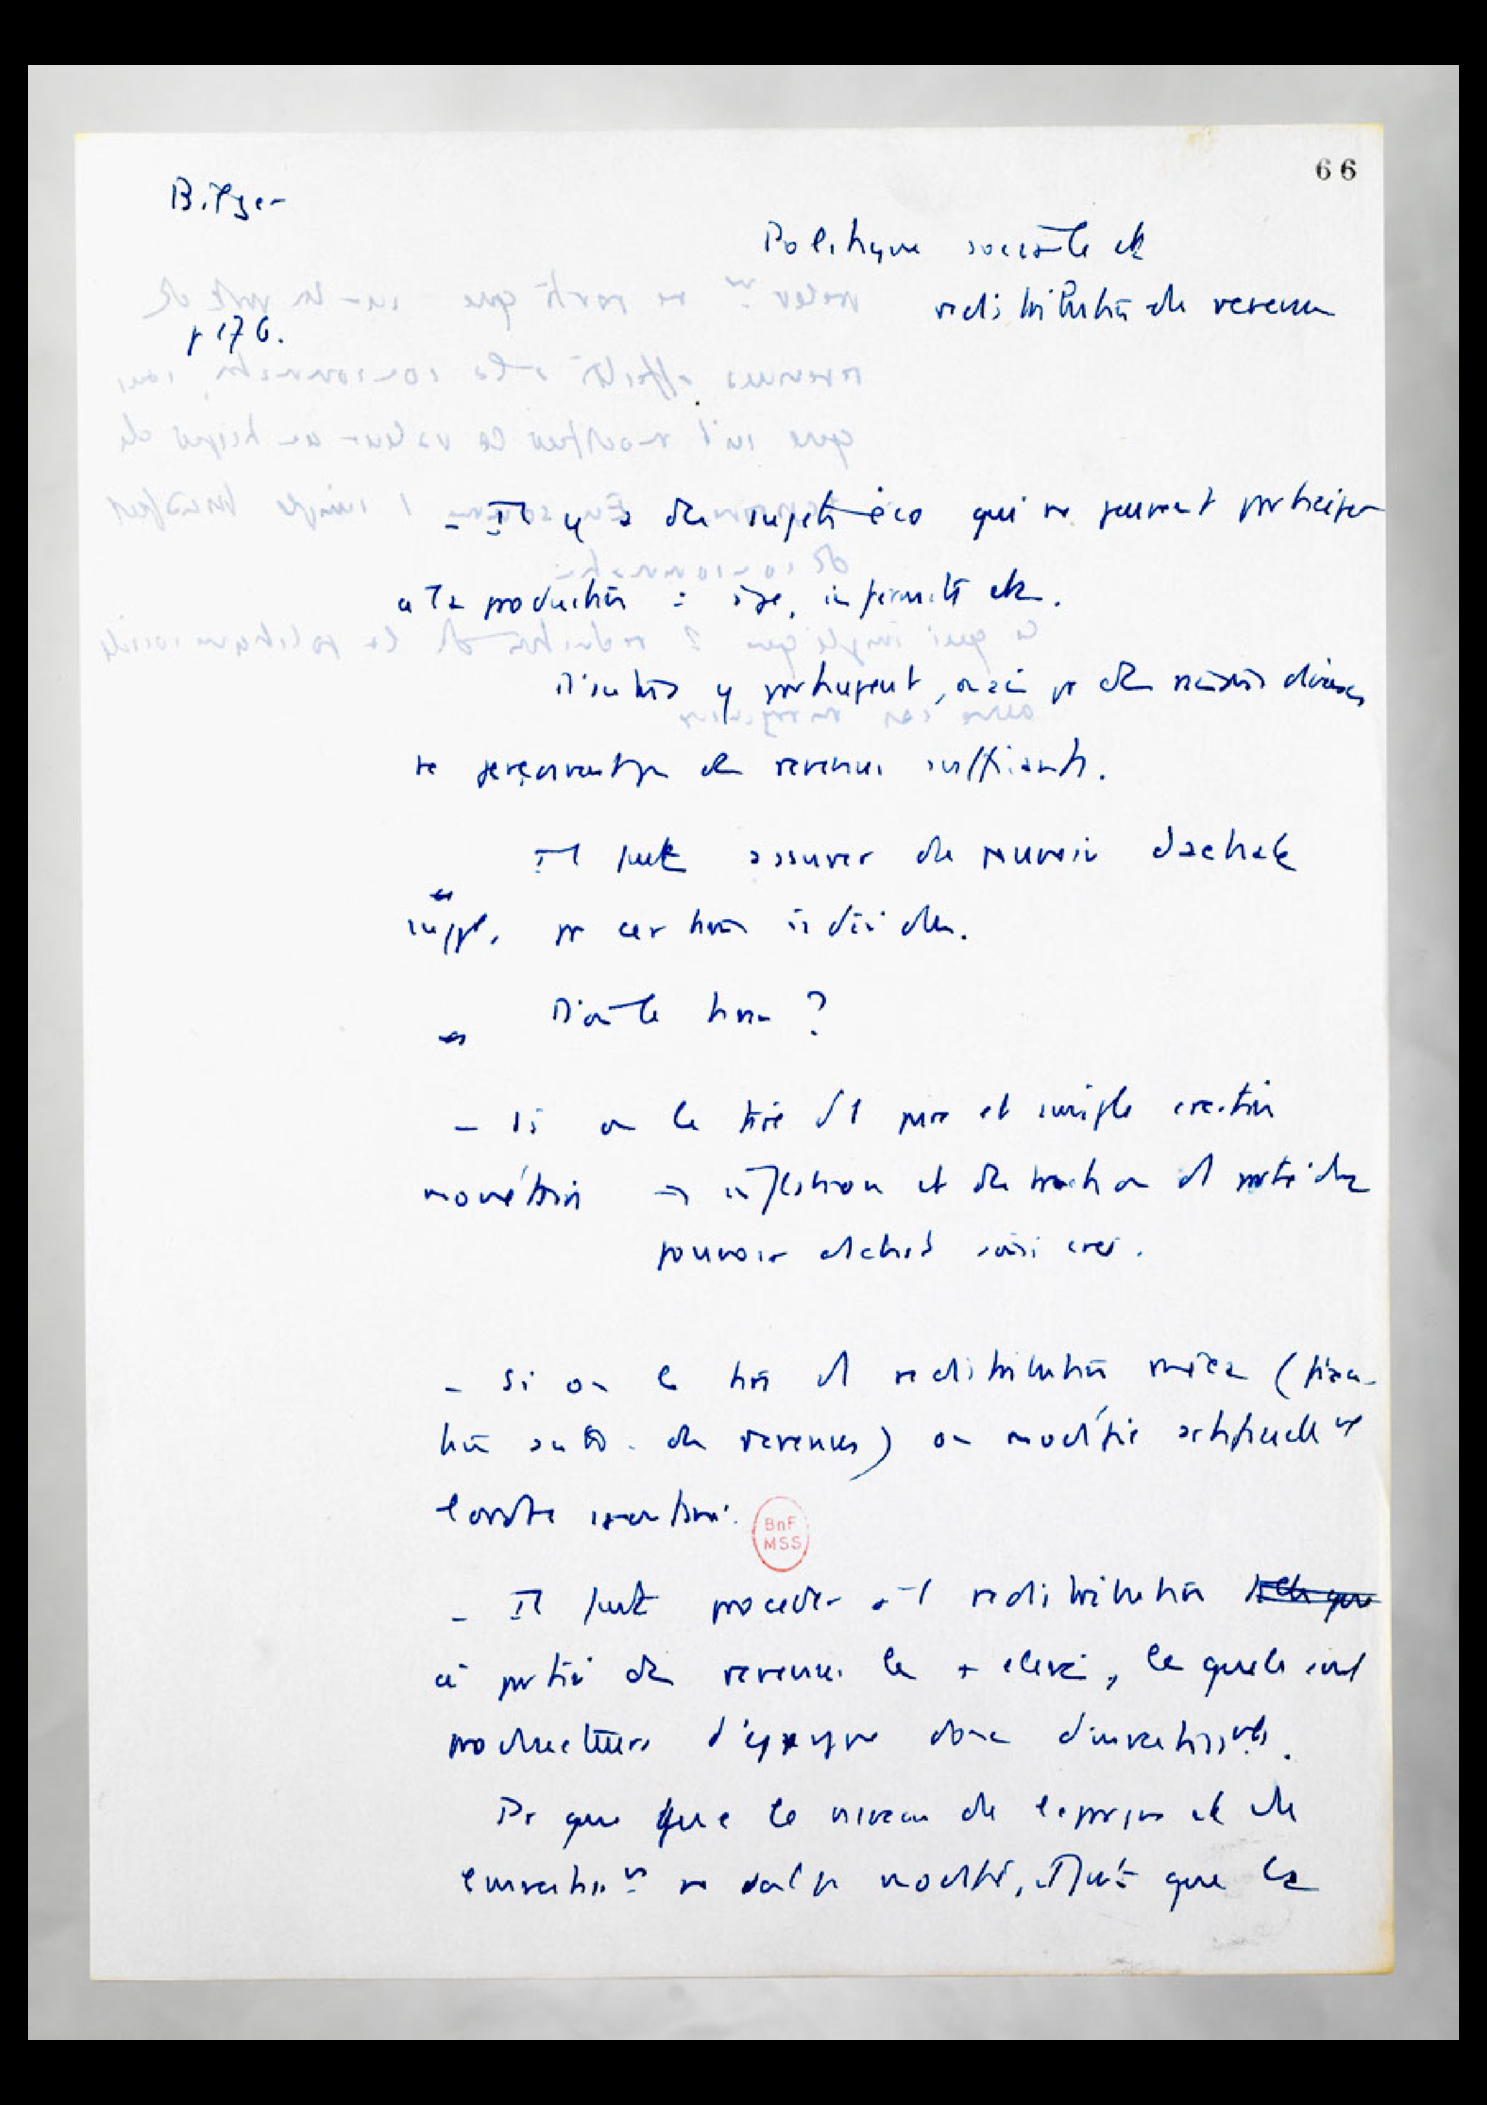 66
Bilger
Politique sociale et
redistribution des revenus
p 176.
- Il y a des sujets éco qui ne peuvent participer
à la production : âge, infirmité etc.
D'autres y participent, mais pr des raisons diverses
ne perçoivent pas des revenus suffisants.
Il faut assurer du pouvoir d'achat
suppl. pr certains individus.
D'où le tirer ?
- Si on le tire d'1 pure et simple création
monétaire → inflation et destruction d'1 partie du
pouvoir d'achat ainsi créé.
- Si on le tire d'1 redistribution (fixa-
tion auto. des revenus) on modifie artificiellemt
- Il faut procéder à 1 redistribution
à partir des revenus les + élevés, lesquels sont
producteurs d'épargne donc d'investissemts.
Pr que que le niveau de l'épargne et de
l'investissmt ne soit pas modifié, il faut que la
BnF
MSS